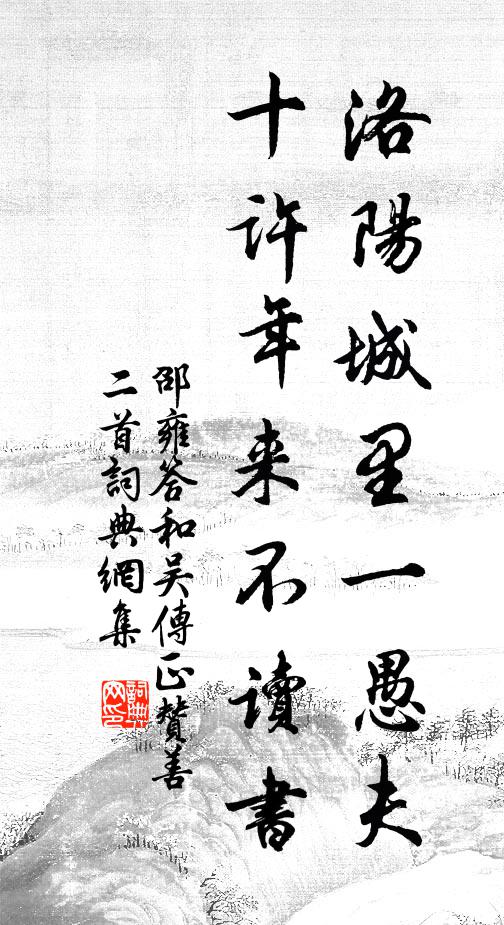 洛陽城里一愚夫
十許年来不讀書
邵雍答和吴傳正贊善
二首詞典網集
詞典网印